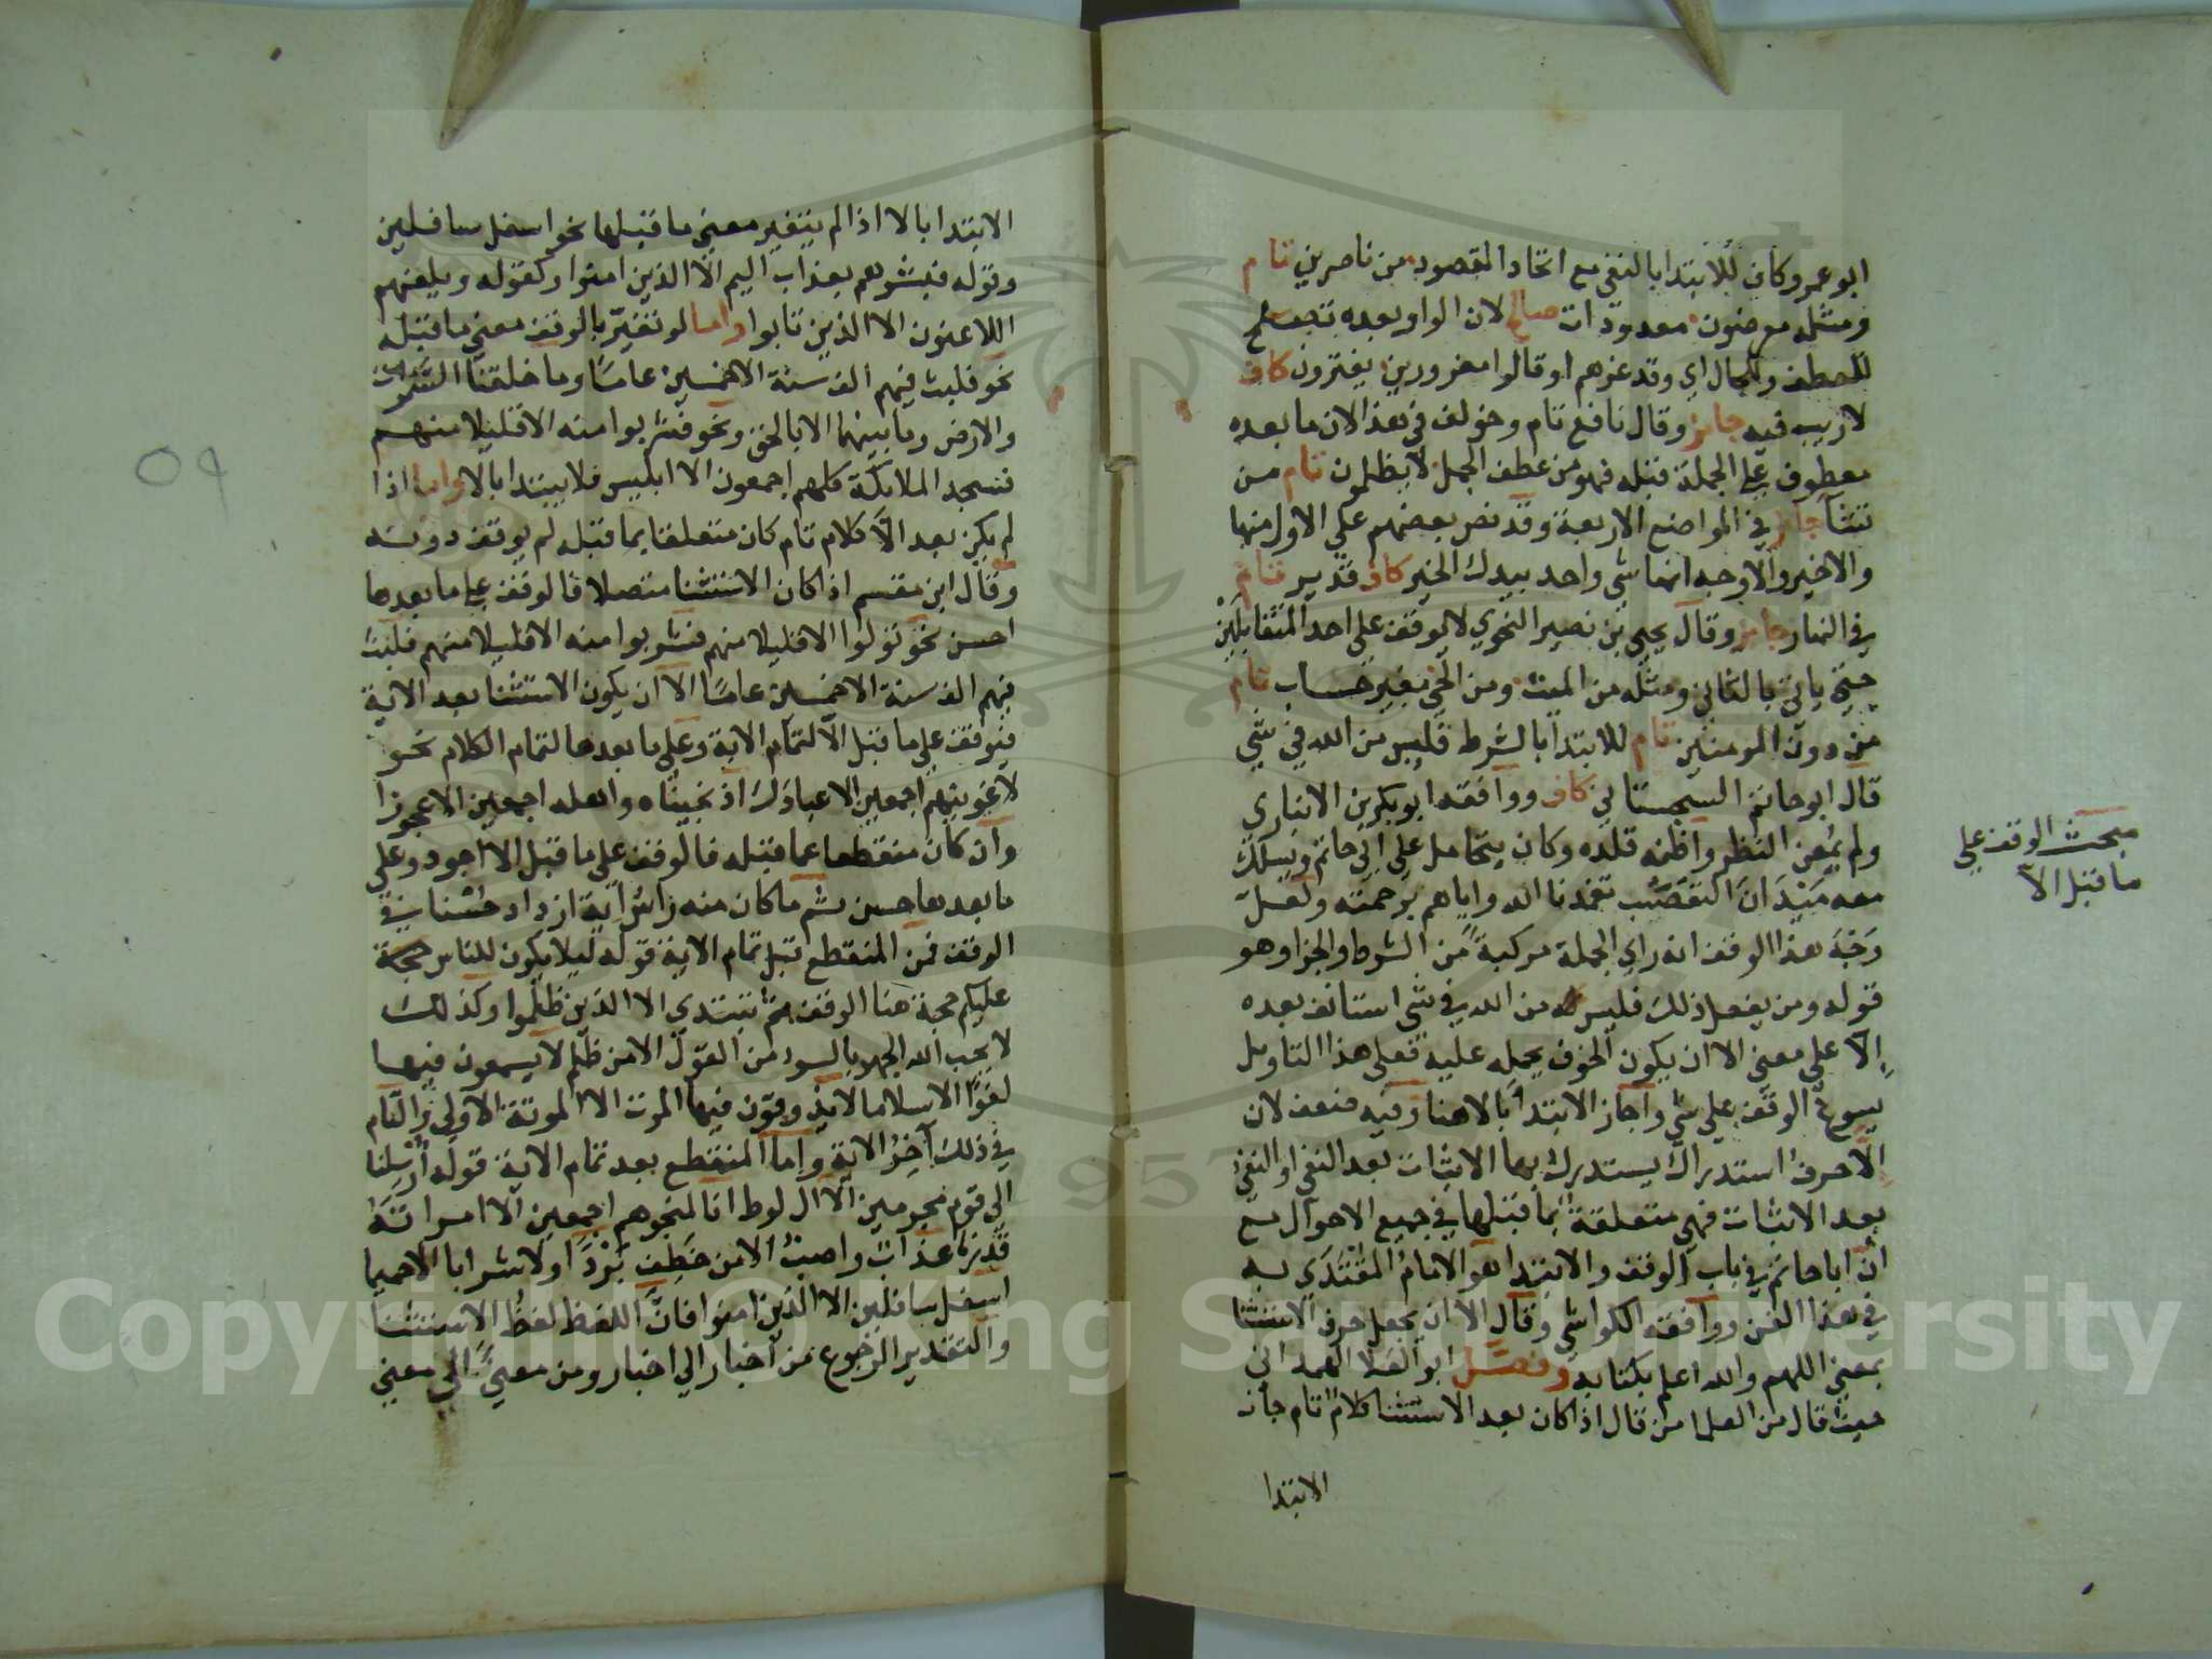 ابو عمرو وكاف للابتدا بالنفي مع اتحاد المقصود من ناصرين تام
ومثله معرضون معدودات صالح لان الواو بعده تصلح
للعطف وللحال اي وقد غرهم او قالوا مغرورين يفترون كاف
لا ريب فيه جائز وقال نافع تام وخولف في هذا لان ما بعده
معطوف على الجملة قبله فهو من عطف الجمل لا يظلمون تام من
تشآ جائز في المواضع الاربعة وقد نص بعضهم على الاول منها
والاخير والاوجه انها شي واحد بيدك الخير كاف قدير تام
في النهار جائز وقال يحيى بن نصير النحوي لا يوقف على احد المتقابلين
حتى ياتي بالثاني ومثله من الميت ومن الحي بغير حساب تام
من دون المومنين تام للابتدا بالشرط فليس من الله في شي
قال ابو حاتم السجستاني كاف ووافقه ابو بكر بن الانباري
ولم يمعن النظر واظنه قلده وكان يتحامل على ابي حاتم ويسلك
معه ميدان التعصب تغمدنا الله واياهم برحمته ولعل
وجه هذا الوقف انه راي الجملة مركبة من الشرط والجزا وهو
قوله ومن يفعل ذلك فليس من الله في شي استانف بعده
الا على معنى الا ان يكون الخوف يحمله عليه فعلى هذا التاويل
يسوغ الوقف على شي واجاز الابتدا بالا هنا وفيه ضعف لان
الا حرف استدراك يستدرك بها الاثبات بعد النفي او النفي
بعد الاثبات فهي متعلقة بما قبلها في جميع الاحوال مع
ان ابا حاتم في باب الوقف والابتدا هو الامام المقتدى به
في هذا الفن ووافقه الكواشي وقال الا ان يجعل حرف الاستثنا
بمعنى اللهم والله اعلم بكتابه وفصل ابو العلا الهمداني
حيث قال من العلما من قال اذا كان بعد الاستثنا كلام تام جاز
الابتدا
مبحث الوقف على
ما قبل الا
الابتدا بالا اذا لم يتغير معنى ما قبلها نحو اسفل سافلين
وقوله فبشرهم بعذاب اليم الا الذين امنوا وكقوله ويلعنهم
اللاعنون الا الذين تابوا واما لو تغير بالوقف معنى ما قبله
نحو فلبث فيهم الف سنة الا خمسين عاما وما خلقنا السموات
والارض وما بينهما الا بالحق ونحو فشربوا منه الا قليلا منهم
فسجد الملائكة كلهم اجمعون الا ابليس فلا يبتدا بالا واما اذا
لم يكن بعد الا كلام تام كان متعلقا بما قبله لم يوقف دونه
وقال ابن مقسم اذا كان الاستثنا متصلا فالوقف على ما بعدها
احسن نحو تولوا الا قليلا منهم فشربوا منه الا قليلا منهم فلبث
فيهم الف سنة الا خمسين عاما الا ان يكون الاستثنا بعد الاية
فيوقف على ما قبل الا لتمام الاية وعلى ما بعدها لتمام الكلام نحو
لاغوينهم اجمعين الا عبادك اذ نجيناه واهله اجمعين الا عجوزا
وان كان منقطعا عما قبله فالوقف على ما قبل الا اجود وعلى
ما بعدها حسن ثم ما كان منه راس آية ازداد حسنا في
الوقف فمن المنقطع قبل تمام الاية قوله ليلا يكون للناس حجة
عليكم حجة هنا الوقف ثم تبتدي الا الذين ظلموا وكذلك
لا يحب الله الجهر بالسوء من القول الا من ظلم لا يسمعون فيها
لغوا الا سلاما لا يذوقون فيها الموت الا الموتة الاولى والتام
في ذلك آخر الاية واما المنقطع بعد تمام الاية قوله ارسلنا
الى قوم مجرمين الا ال لوط انا لمنجوهم اجمعين الا امراته
قدرنا عذاب واصب الا من خطف بردا ولا شرابا الا حميما
اسفل سافلين الا الذين امنوا فان اللفظ لفظ الاستثنا
والتقدير الرجوع من اخبار الي اخبار ومن معنى الى معنى
٥٩
Copyright © King Saud University
1957